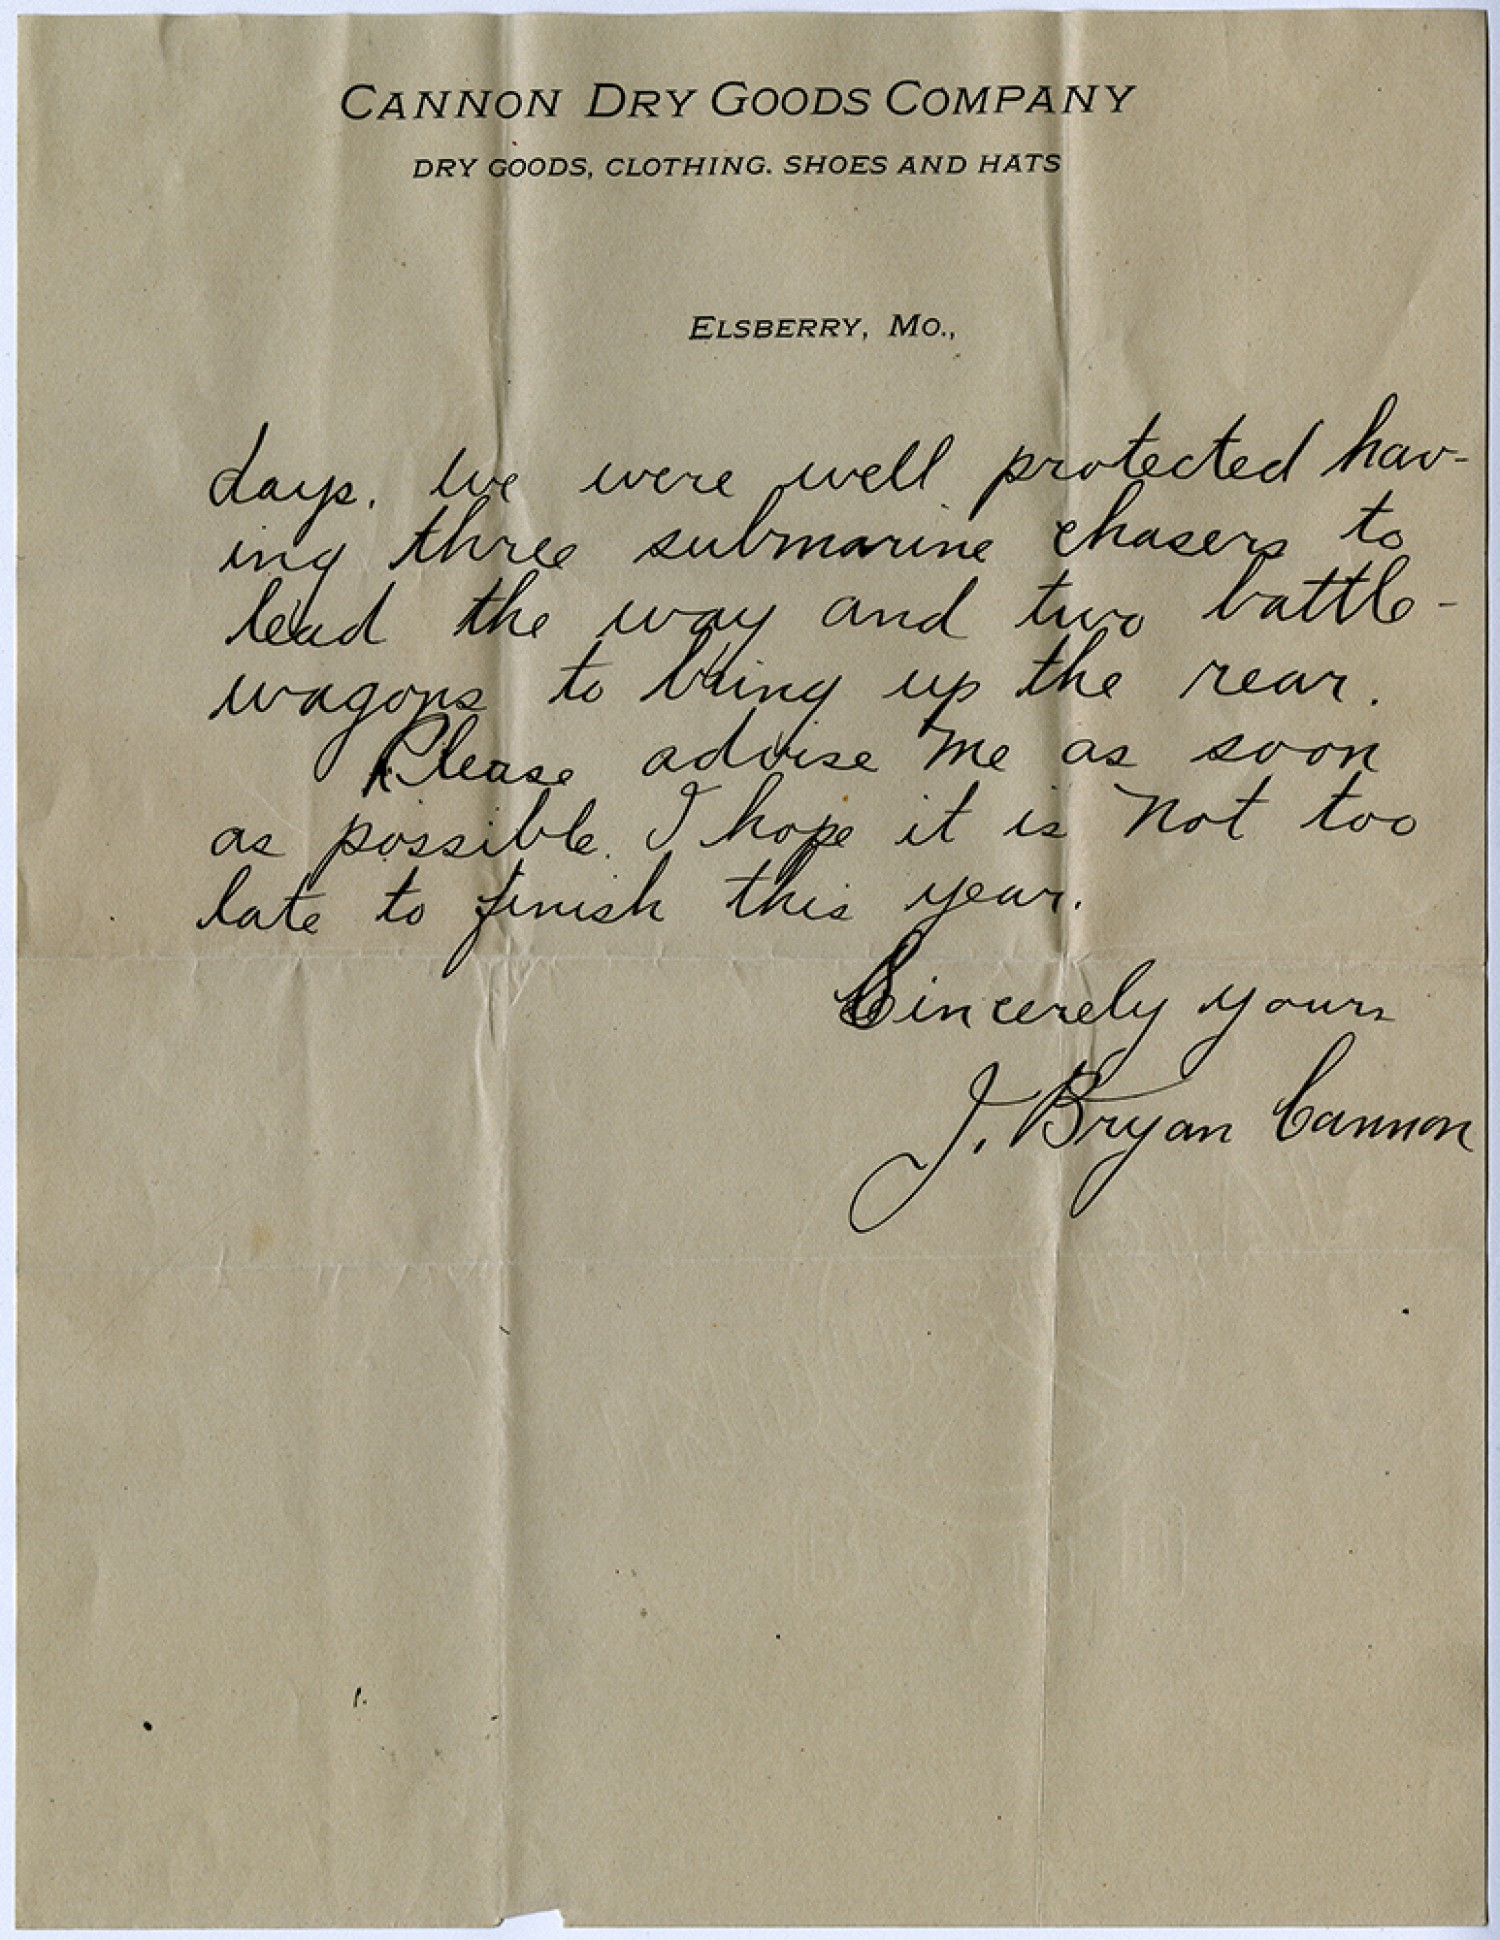 CANNON DRY GOODS COMPANY
DRY GOODS, CLOTHING. SHOES AND HATS
ELSBERRY, MO.,
days. We were well protected hav-
ing three submarine chasers to
lead the way and two battle-
wagons to bring up the rear.
Please advise me as soon
as possible. I hope it is not too
late to finish this year.
Sincerely yours
J. Bryan Cannon